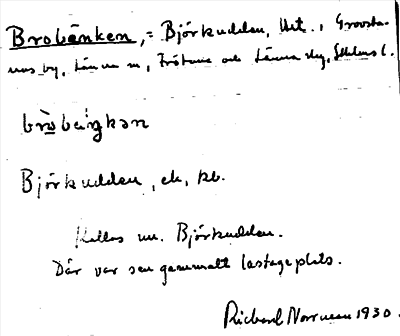 Brobänken, = Björkudden, Utt., Grossta-
nas by, Länna sn, Frötuna och Länna skg, Sthlms l.
brò̱bäŋkən
Björkudden, ek, kb.
Kallas nu. Björkudden.
Där var sen gammalt lastageplats.
Richard Norrman 1930.